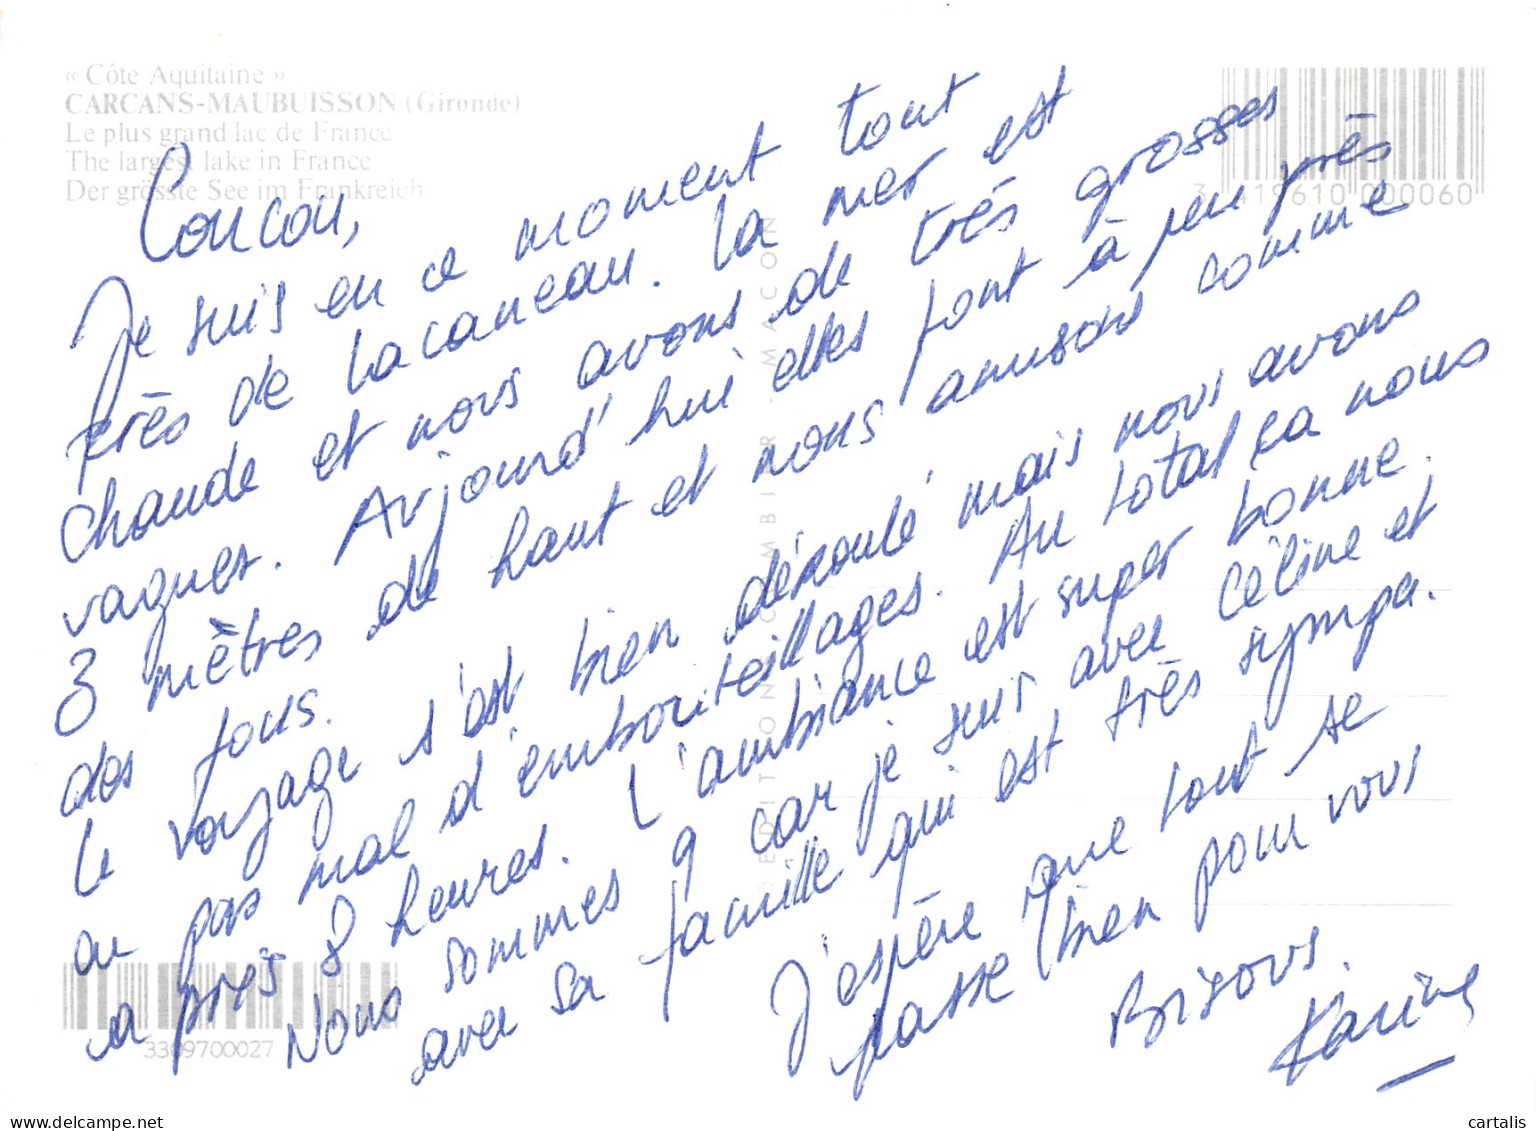 « Côte Aquitaine »
CARCANS-MAUBUISSON (Gironde)
Le plus grand lac de France
The largest lake in France
Der grösste See im Frankreich
3 419610 000060
Coucou,
Je suis en ce moment tout
près de Lacaneau. La mer est
chaude et nous avons de très grosses
vagues. Aujourd'hui elles font à peu près
3 mètres de haut et nous amusons comme
des fous.
Le voyage s'est bien déroulé mais nous avons
eu pas mal d'embouteillages. Au total ça nous
a pris 8 heures. L'ambiance est super bonne.
Nous sommes 9 car je suis avec Céline et
avec sa famille qui est très sympa.
J'espère que tout se
passe bien pour vous
Bisous.
Karine
3309700027
EDITIONS COMBIER - MACON
www.delcampe.net
cartalis